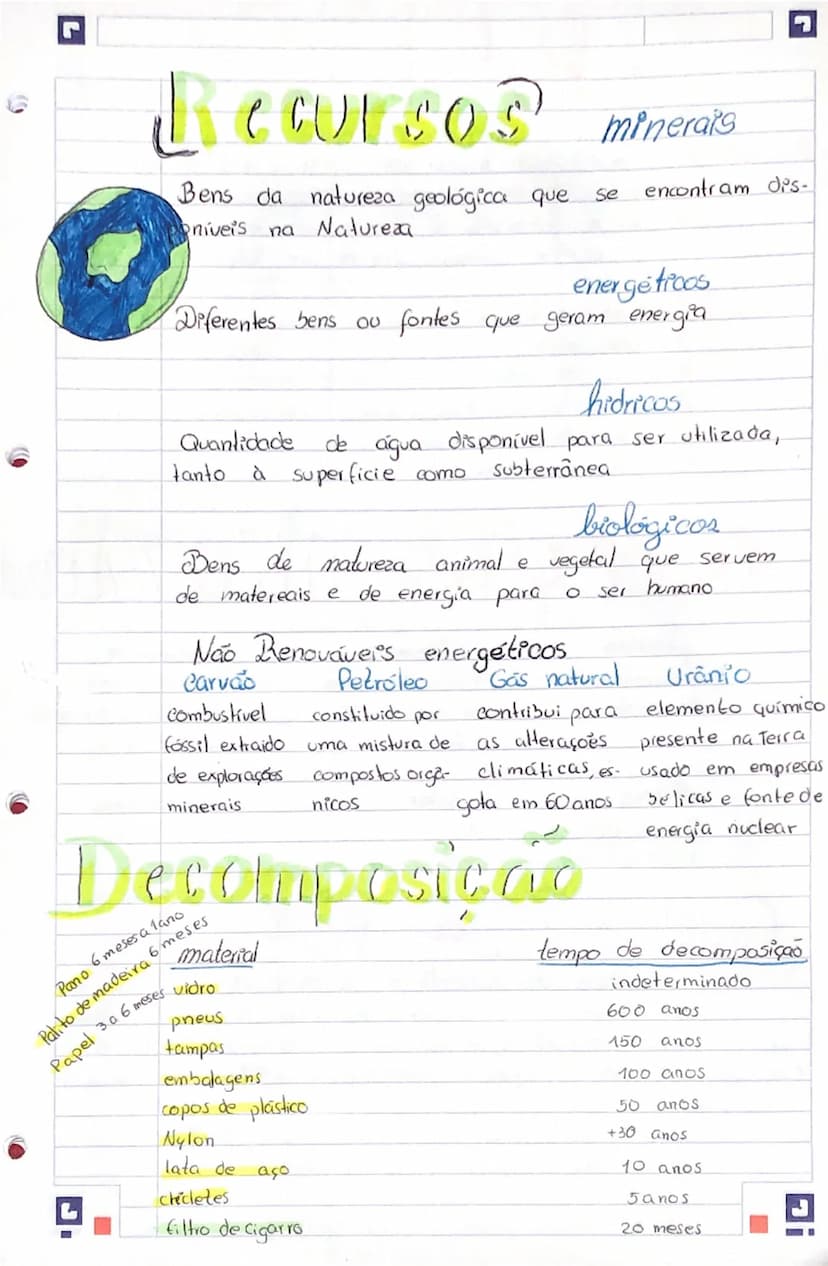 Recursos minerais
Bens da natureza geológica que se encontram dis-
poníveis na Natureza
energéticos
Diferentes bens ou fontes que geram energia
hidricos
Quantidade de água disponível para ser utilizada,
tanto à superficie como subterrânea
biológicos
Bens de natureza animal e vegetal que servem
de matereais e de energia para o ser humano
Não Renováveis energéticos
Carvão Petróleo Gás natural Urânio
combustível constituido por contribui para elemento químico
fóssil extraido uma mistura de as alterações presente na Terra
de explorações compostos orgâ- climáticas, es- usado em empresas
minerais nicos gota em 60 anos bélicas e fonte de
energia nuclear
Decomposição
Pano 6 meses a 1 ano
Palito de madeira 6 meses
Papel 3 a 6 meses
material tempo de decomposição
vidro indeterminado
pneus 600 anos
tampas 150 anos
embalagens 100 anos
copos de plástico 50 anos
Nylon +30 anos
lata de aço 10 anos
chicletes 5 anos
filtro de cigarro 20 meses